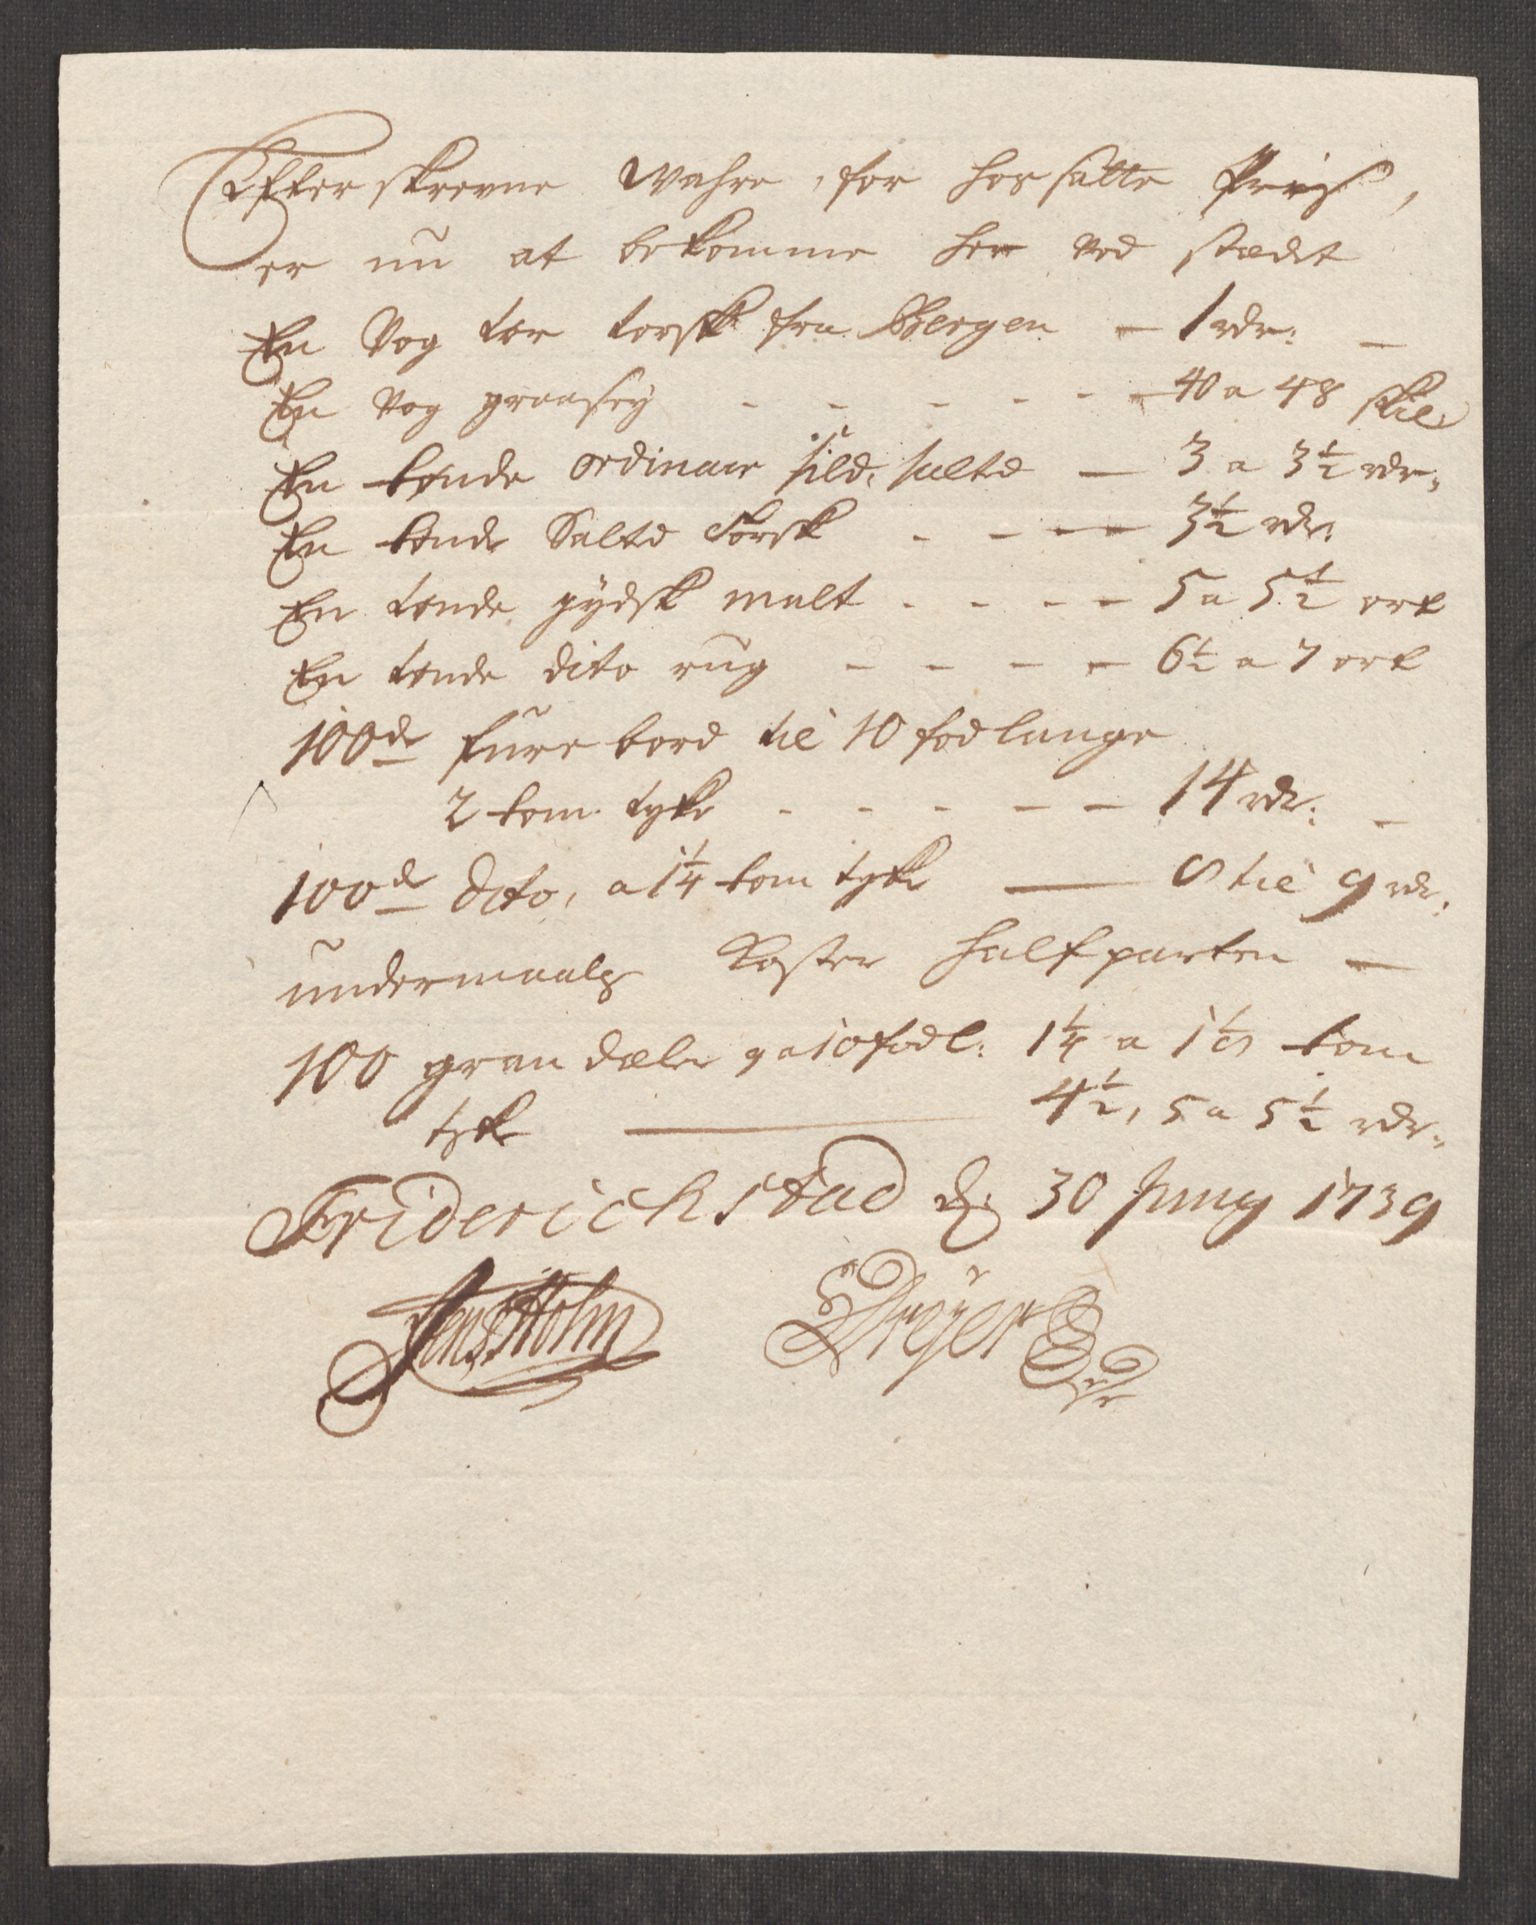 Efterskrevne Wahre, for hossatte Priis,
er nu at bekomme her ved stædet
En Vog tør torsk fra Bergen — 1 rdr: —
En Vog graasey - - - - - 40 a 48 skil
En tønde ordinair sild, saltd — 3 a 3½ rdr:
En tønde Saltd Torsk - - - — 3½ rdr:
En tønde jydsk malt - - - - 5 a 5½ ort
En tønde dito rug - - - - 6½ a 7 ort
100de fure bord til 10 fod lange
2 tom tyke - - - - - 14 rdr: —
100de dito, a 1¼ tom tyke — 8 til 9 rdr:
undermaals koster halfparten —
100 gran dæler 9 a 10 fod l: 1¼ a 1½ tom
tyk — 4½, 5 a 5½ rdr:
Friderichstad d: 30 Juny 1739
Jens Holm Dreyer